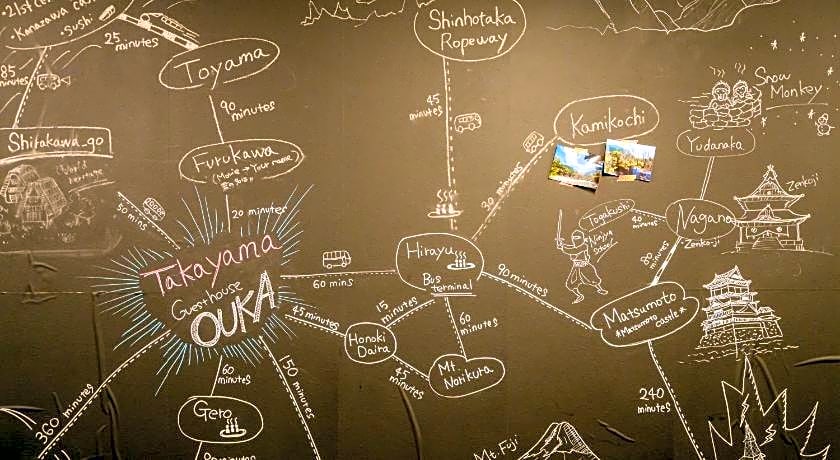 21st ce
Kanazawa cas
Sushi
25
minutes
85
minutes
Toyama
90
minutes
Shirakawa-go
World
heritage
50 mins
Furukawa
(Movie → Your name
20 minutes
Takayama
Guesthouse
OUKA
60 mins
45 minutes
Shinhotaka
Ropeway
45
minutes
Hirayu
Bus
terminal
30 minutes
Kamikochi
15
minutes
Honoki
Daira
45
minutes
60
minutes
Mt.
Norikura
90 minutes
Snow
Monkey
Yudanaka
Zenkoji
Nagano
Zenkoji
Togakushi
40
minutes
Ninjya
80
minutes
Matsumoto
*Matsumoto
Castle*
240
minutes
360 minutes
60
minutes
Gero
150 minutes
90 minutes
Mt. Fuji